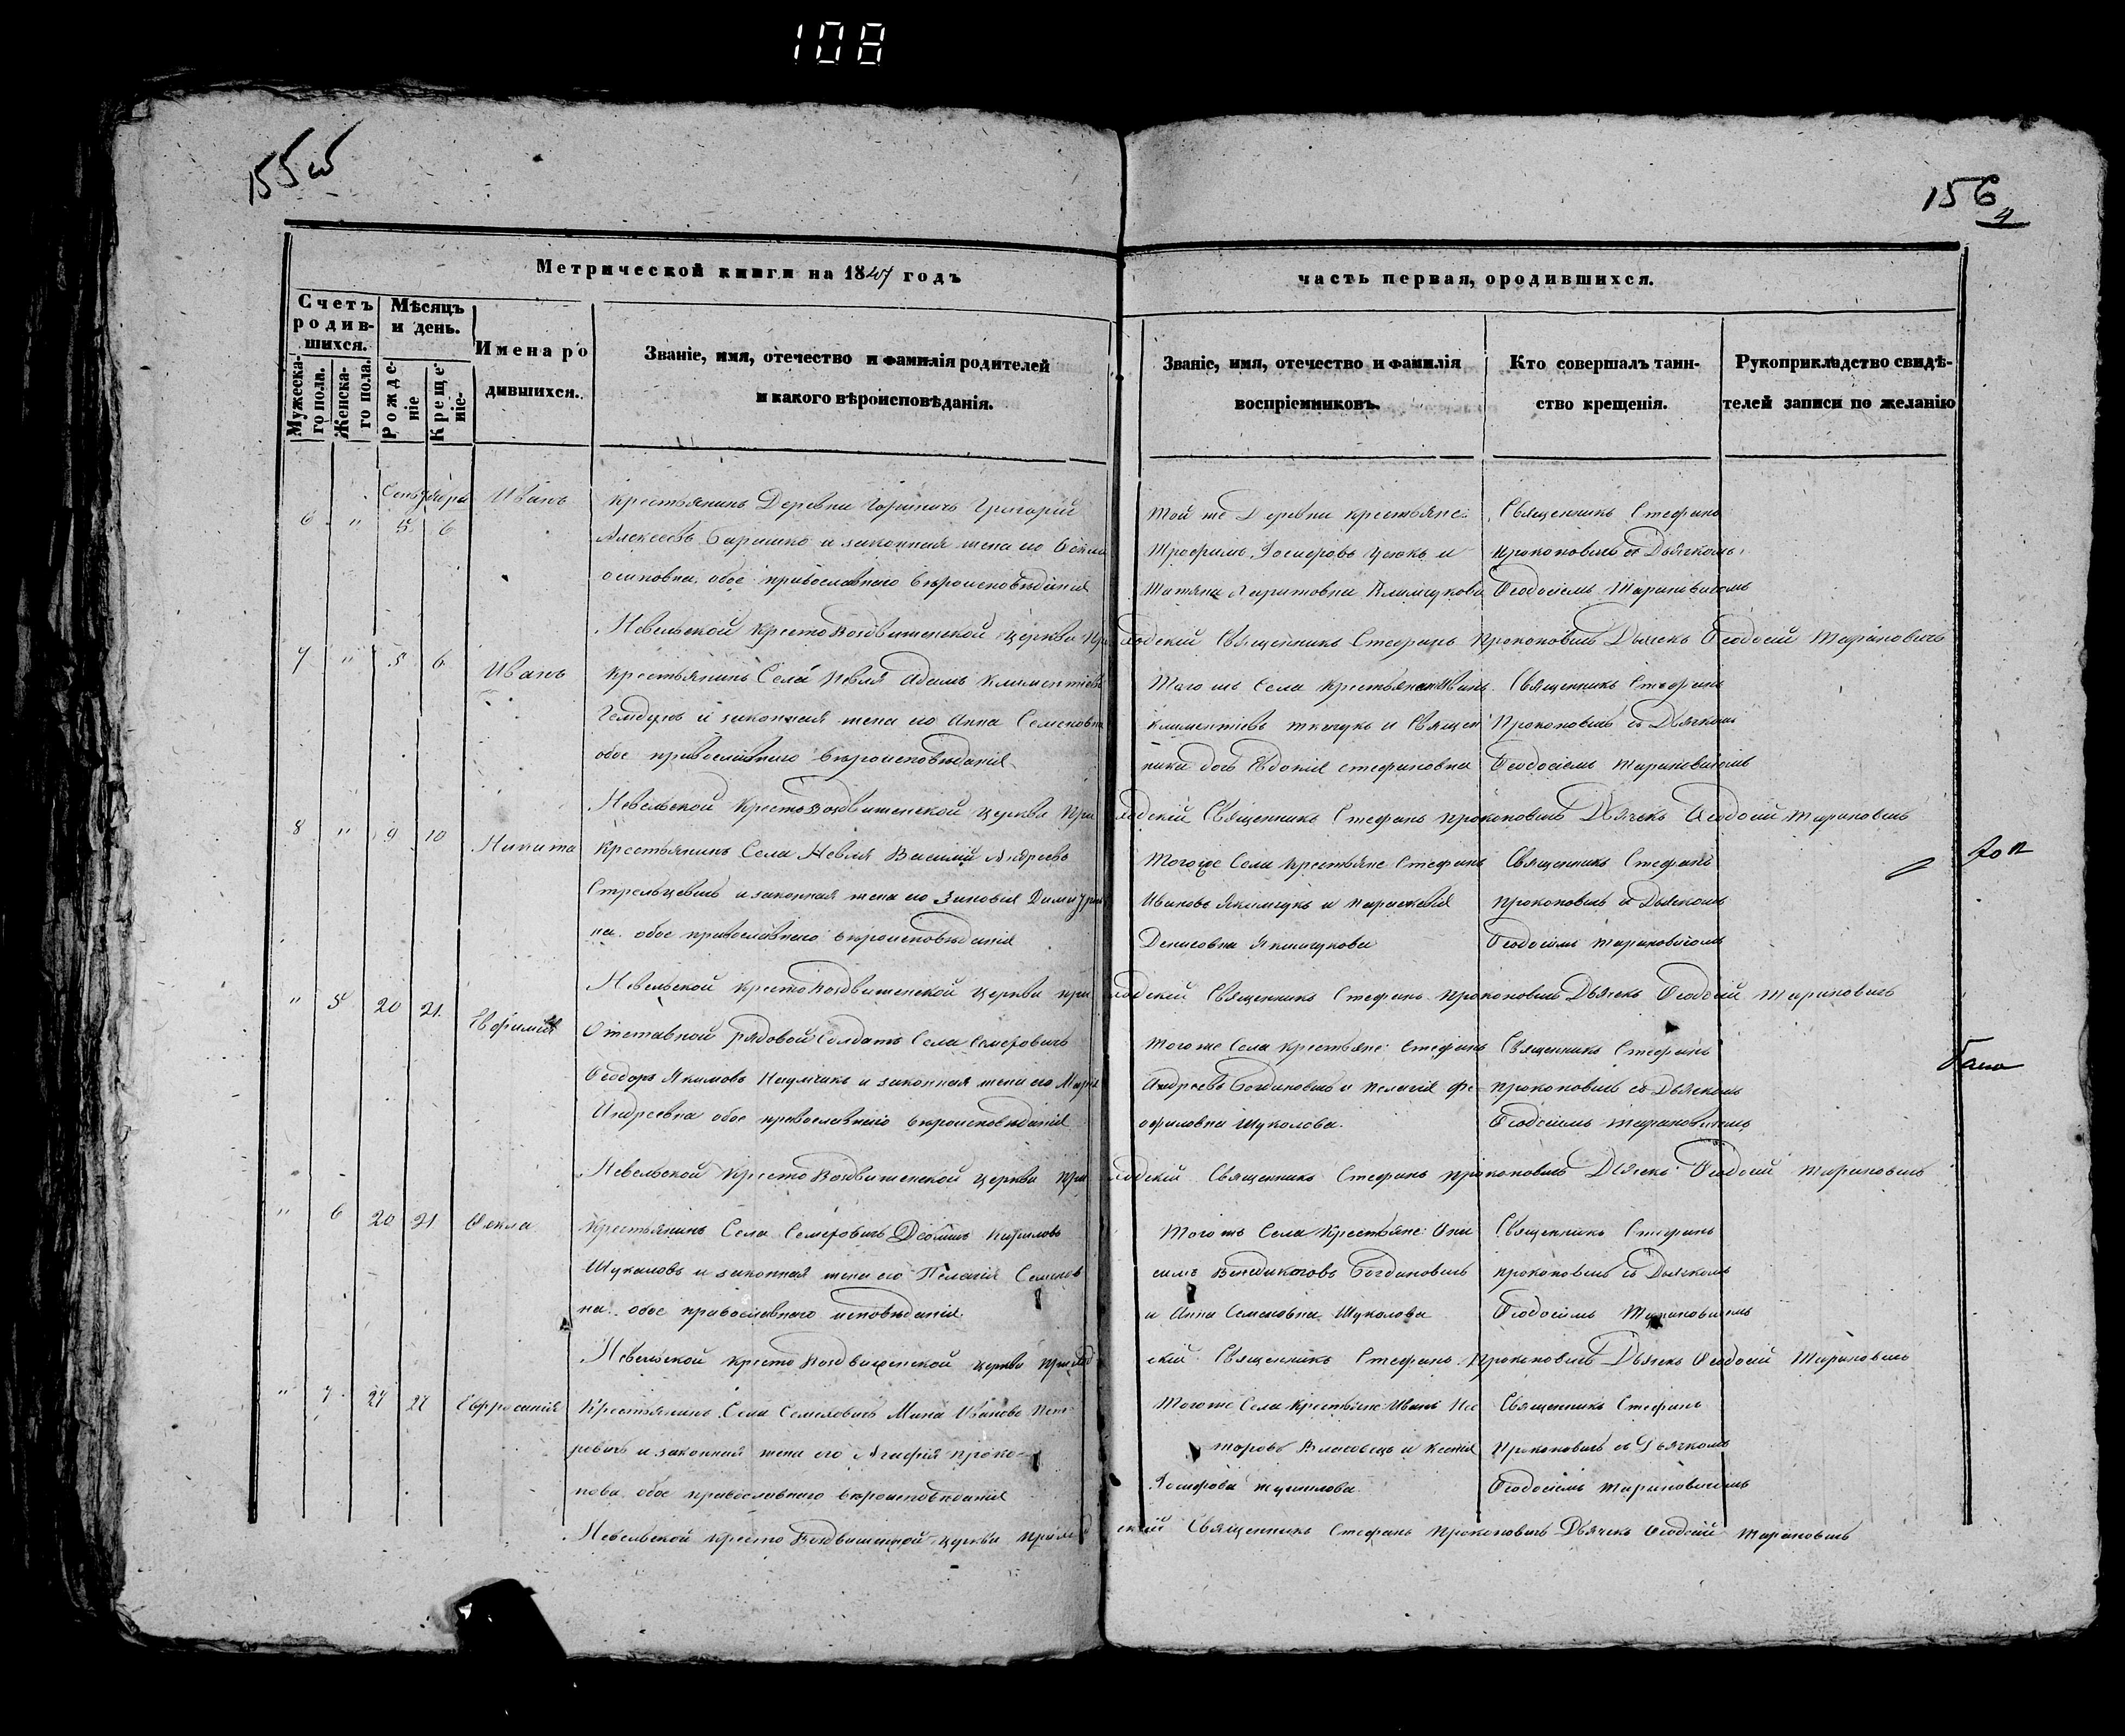 108
155 об
156
4
Метрической книги на 1847 годъ
часть первая, ородившихся.
Счетъ родив-шихся.
Мѣсяцъ и день.
Имена ро
дившихся.
Званіе, имя, отечество и фамилія родителей
и какого вѣроисповѣданія.
Званіе, имя, отечество и фамилія
воспріемниковъ.
Кто совершалъ таин-
ство крещенія.
Рукоприкладство свидѣ-
телей записи по желанію
Мужеска-го пола.
Женска-го пола.
Рожде-ніе
Креще-ніе-
Сентября
6 " 5 6 Иванъ
Крестьянинъ Деревни Горыничъ Григорій
Алексеевъ и законная жена его
обое православнаго вѣроисповѣданія
Той же Деревни крестьяне:
Трофимъ Іосифовъ и
Татяна Климчукова
Священникъ Стефанъ
Прокоповичъ съ Дьячкомъ
Ѳеодосіемъ Тарановичомъ
Невельской КрестоВоздвиженской церкви Приходскій Священникъ Стефанъ Прокоповичъ Дьячекъ Ѳеодосій Тарановичъ
7 " 5 6 Иванъ
Крестьянинъ Села Невля Адамъ Климентіевъ
и законная жена его Анна Семеновна
обое православнаго вѣроисповѣданія
Того жъ Села Крестьянинъ Иванъ
Климентіевъ Ткачукъ и Священ
ника дочь Евдокія Стефановна
Священникъ Стефанъ
Прокоповичъ съ Дьячкомъ
Ѳеодосіемъ Тарановичомъ
Невельской КрестоВоздвиженской церкви Приходскій Священникъ Стефанъ Прокоповичъ Дьячекъ Ѳеодосій Тарановичъ
8 " 9 10 Никита
Крестьянинъ Села Невля Василій Андреевъ
Стрельцевичъ и законная жена его Зиновія Димитріев
на обое православнаго вѣроисповѣданія
Тогоже Села Крестьяне Стефанъ
Ивановъ Якимчукъ и Параскевія
Денисовна Якимчукова
Священникъ Стефанъ
Прокоповичъ съ Дьячкомъ
Ѳеодосіемъ Тарановичомъ
Невельской КрестоВоздвиженской церкви Приходскій Священникъ Стефанъ Прокоповичъ Дьячекъ Ѳеодосій Тарановичъ
" 5 20 21 Евфимія
Отставной рядовой Солдатъ Села Семеховичъ
Ѳеодоръ Якимовъ Наумчикъ и законная жена его Марія
Андреевна обое православнаго вѣроисповѣданія
Того же Села крестьяне: Стефанъ
Андреевъ Богдановичъ и Пелагія Фе-
офиловна Шуколова.
Священникъ Стефанъ
Прокоповичъ съ Дьячкомъ
Ѳеодосіемъ Тарановичемъ
Невельской КрестоВоздвиженской церкви Приходскій Священникъ Стефанъ Прокоповичъ Дьячекъ Ѳеодосій Тарановичъ
" 6 20 21 Ѳекла
Крестьянинъ Села Семеховичъ Кириловъ
Шукаловъ и законная жена его Пелагія Семенов
на обое православнаго исповѣданія
Того жъ Села Крестьяне: Они
симъ Венедиктовъ Богдановичъ
и Анна Семеновна Шуколова
Священникъ Стефанъ
Прокоповичъ съ Дьячкомъ
Ѳеодосіемъ Тарановичемъ
Невельской КрестоВоздвиженской церкви Приходскій Священникъ Стефанъ Прокоповичъ Дьячекъ Ѳеодосій Тарановичъ
" 7 27 27 Евфросинія
Крестьянинъ Села Семеховичъ Мина Ивановъ Пет
ровичъ и законная жена его Агафія Проко-
пова обое православнаго вѣроисповѣданія
Тогоже Села Крестьяне Иванъ Нес
торовъ Власовецъ и Ксенія
Іосифова
Священникъ Стефанъ
Прокоповичъ съ Дьячкомъ
Ѳеодосіемъ Тарановичемъ
Невельской КрестоВоздвиженской церкви Приходскій Священникъ Стефанъ Прокоповичъ Дьячекъ Ѳеодосій Тарановичъ